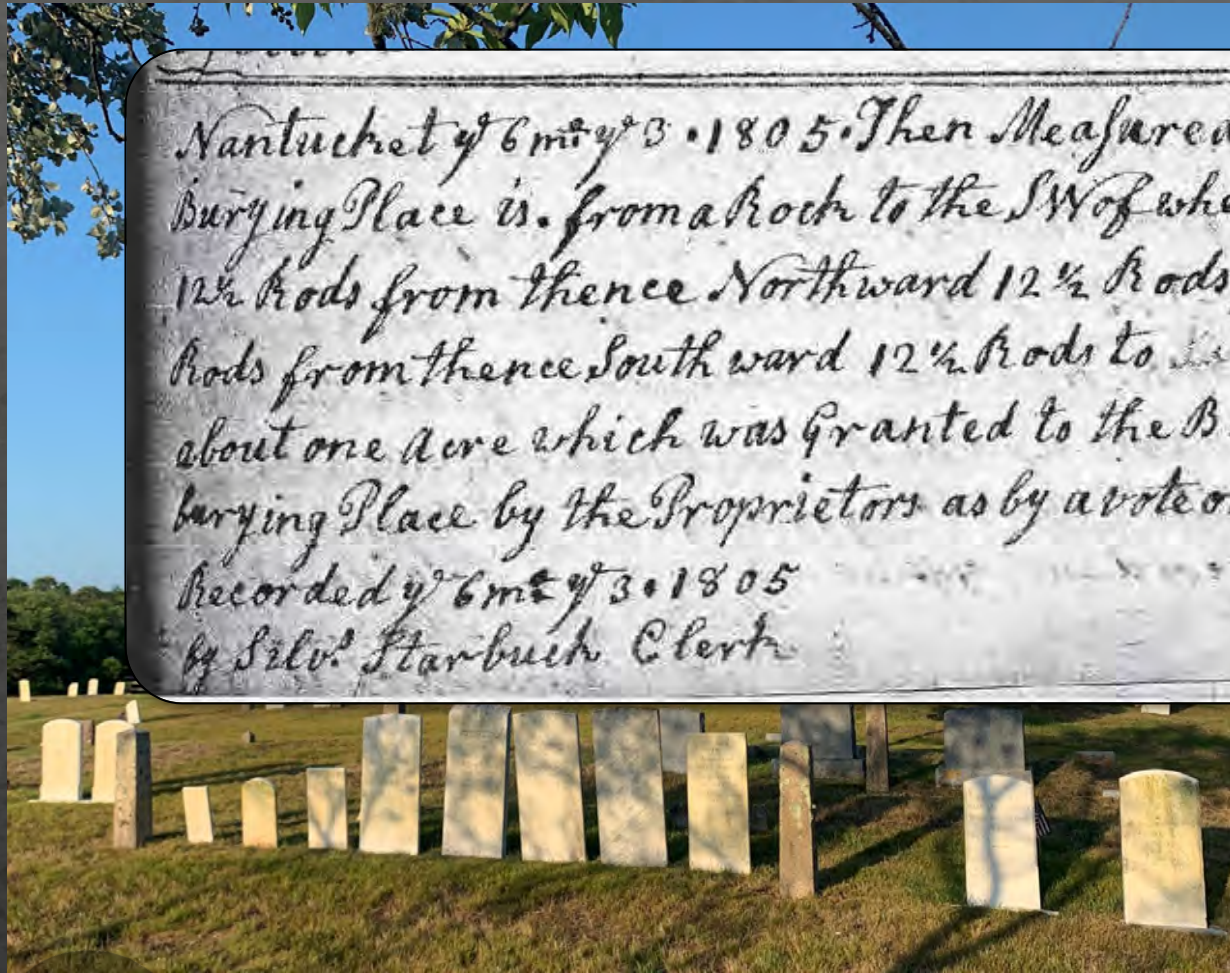 Nantucket yͤ 6 mͦ yͤ 3 • 1805 • Then Measured
Burying Place is. from a Rock to the SW of
12½ Rods from thence Northward 12½ Rods
Rods from thence Southward 12½ Rods to
about one Acre which was Granted to the
burying Place by the Proprietors as by a vote
Recorded yͤ 6 mͦ yͤ 3 • 1805
by Silvͦ Starbuck Clerk